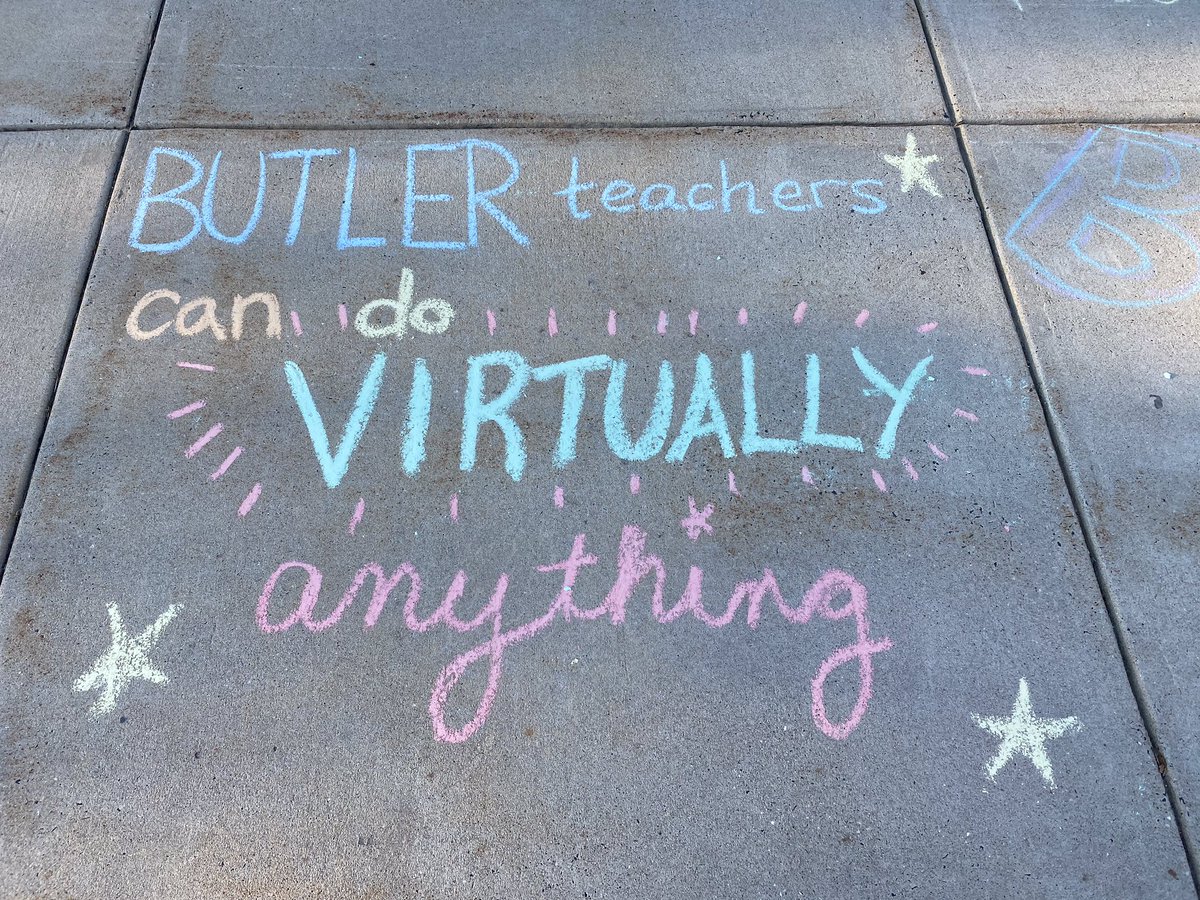 BUTLER teachers
can do
VIRTUALLY
anything
B